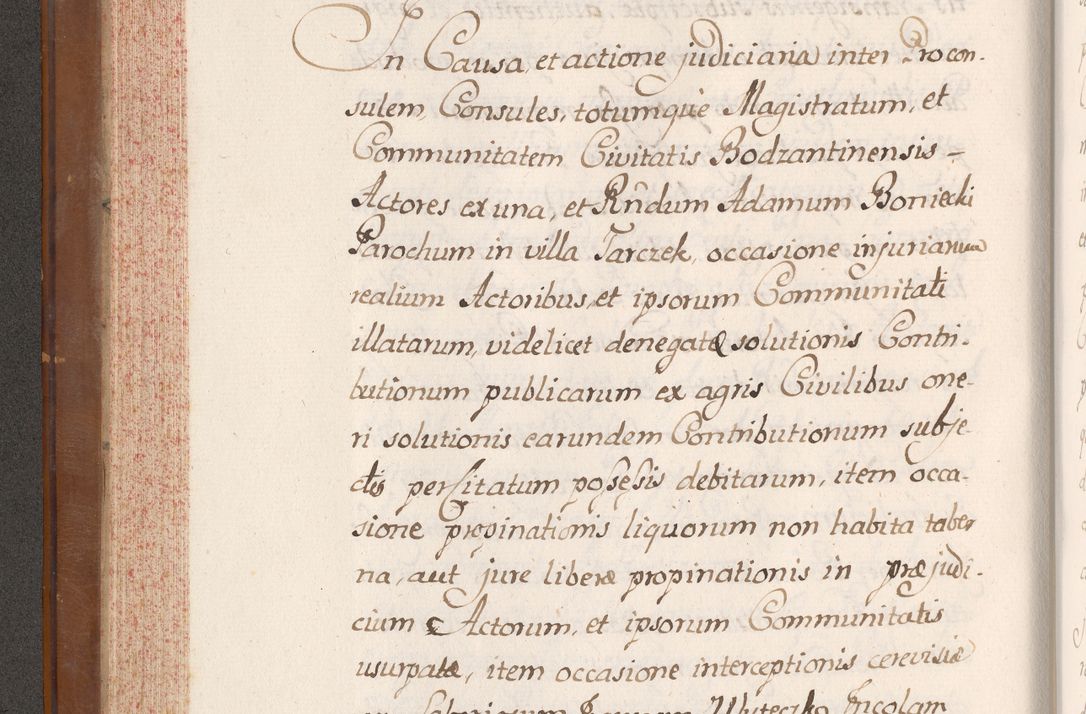 In Causa, et actione judiciaria inter Procon-
sulem, Consules, totumque Magistratum, et
Communitatem Civitatis Bodzantinensis =
Actores ex una, et Rñdum Adamum Boniecki
Parochum in villa Tarczek, occasione injuriarum
realium Actoribus, et ipsorum Communitati
illatarum, videlicet denegatæ solutionis Contri-
butionum publicarum ex agris Civilibus one-
ri solutionis earundem Contributionum subje-
ctis per Citatum possessis debitarum, item occa-
sione propinationis liquorum non habita taber
na, aut jure liberæ propinationis in præjudi-
cium Actorum, et ipsorum Communitatis
usurpatæ, item occasione interceptionis cerevisiæ
Incolam